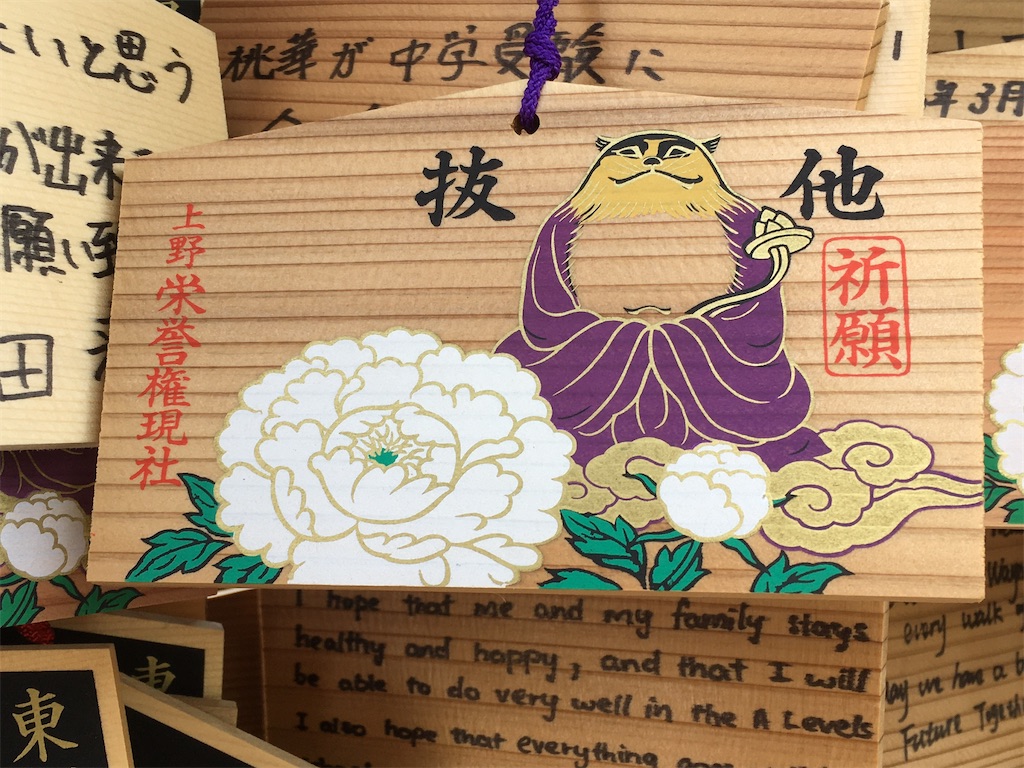 いと思う
が出来
願い
桃華が中学受験に
年3月
他
抜
祈願
上野栄誉権現社
I hope that me and my family stays
healthy and happy, and that I will
be able to do very well in the A Levels
I also hope that everything goes well
every walk
have a
Future
東
東